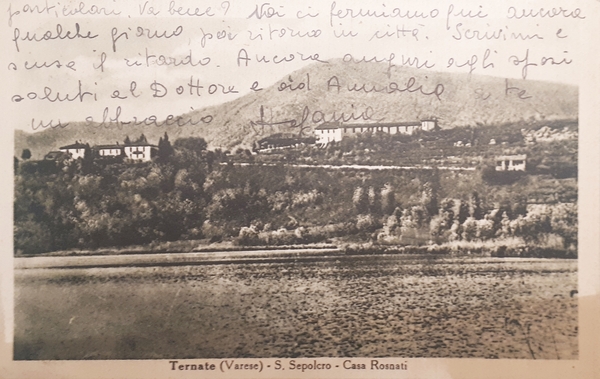 particolari. Va bene? Noi ci fermiamo qui ancora
qualche giorno poi ritorno in città. Scrivimi e
scusa il ritardo. Ancora auguri agli sposi
saluti al Dottore e ad Amalia a te
un abbraccio Stefania
Ternate (Varese) - S. Sepolcro - Casa Rosnati